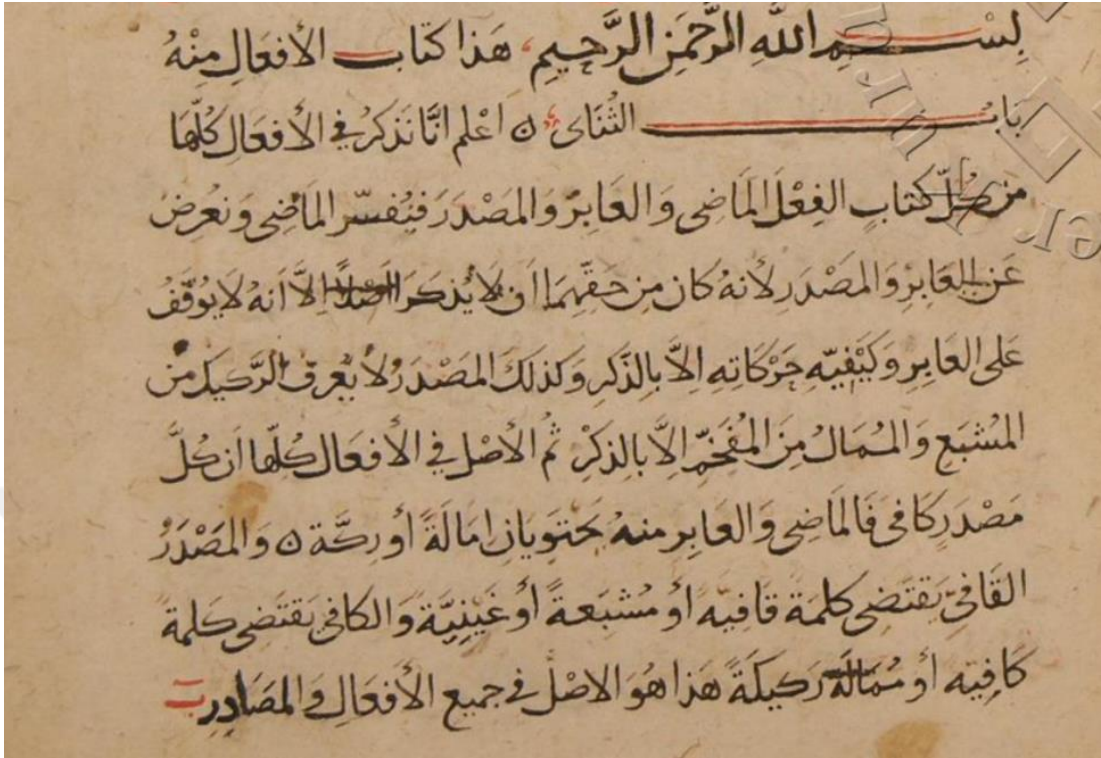 بِسْمِ اللَّهِ الرَّحْمَنِ الرَّحِيمِ، هَذا كتَاب الأفعَال مِنْهُ
بَابُ الثُنَائ ن اعْلم انَّا نَذكرُ في الأفعَال كُلّهَا
مِن كُلّ كتابٍ الفِعْلَ المَاضِى وَالغَابِرَ وَالمَصْدَرَ فنُفسّر المَاضِى وَنعْرِضُ
عَن الغَابِرِ وَالمَصْدَرِ لأنهُ كان مِن حَقِّهِمَا اَن لا يُذكرَا اصْلاً اِلاَّ اَنهُ لا يُوقَفُ
عَلى الغَابِرِ وَكَيْفيّه حَرْكَاتِه اِلاَّ بالذّكرِ وَكذلكَ المَصْدَرُ لا يُعْرفُ الرَّكيكُ من
المُشبَعِ وَالمُمَالُ مِنَ المُفَخَّمِ اِلاَّ بالذِكرْ ثُمّ الأصْل في الأفعَال كُلّها اَن كُلَّ
مَصْدَرِ كَافي فَالمَاضِى وَالغَابِر منهُ يَحتَوِيَانِ امَالَةً أو رِكَّة ن وَالمَصْدَرُ
القَافيّ يَقتَضِى كلمَة قَافيه أوْ مُشبَعةً أوْ غَيْنِيَّة وَالكافيّ يَقتَضى كَلمة
كَافِيه أوْ مُمَالَةً رَكيكَةً هَذا هُوَ الاصْل في جميع الأفعَال وَالمصَادِرِ